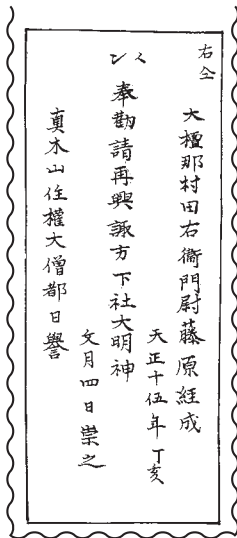 右仝
大檀那村田右衞門尉藤原経成
天正十伍年丁亥
奉勧請再興諏方下社大明神
文月四日崇之
真木山住權大僧都日譽